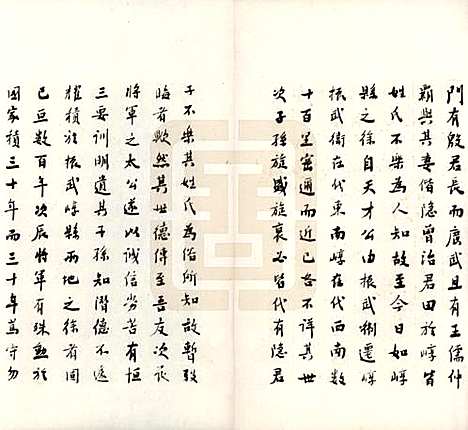 門有殷君長而廣武且有王儒仲
霸與其妻偕隱曾治君田於崞皆
姓氏不樂為人知故至今日如崞
縣之徐自天才公由振武衛遷崞
振武衛在代東南崞在代西南數
十百里密邇而近已各不詳其世
次子孫族盛族衰必皆代有隱君
子不樂其姓氏為俗所知故暫弢
晦者歟然其世德傳至吾友次辰
將軍之太公遂以誠信勞苦有恒
三要訓明道其子孫知潛德不遠
耀積於振武崞縣兩地之徐者固
已亘數百年次辰將軍有殊勳於
國家積三十年而三十年篤守勿